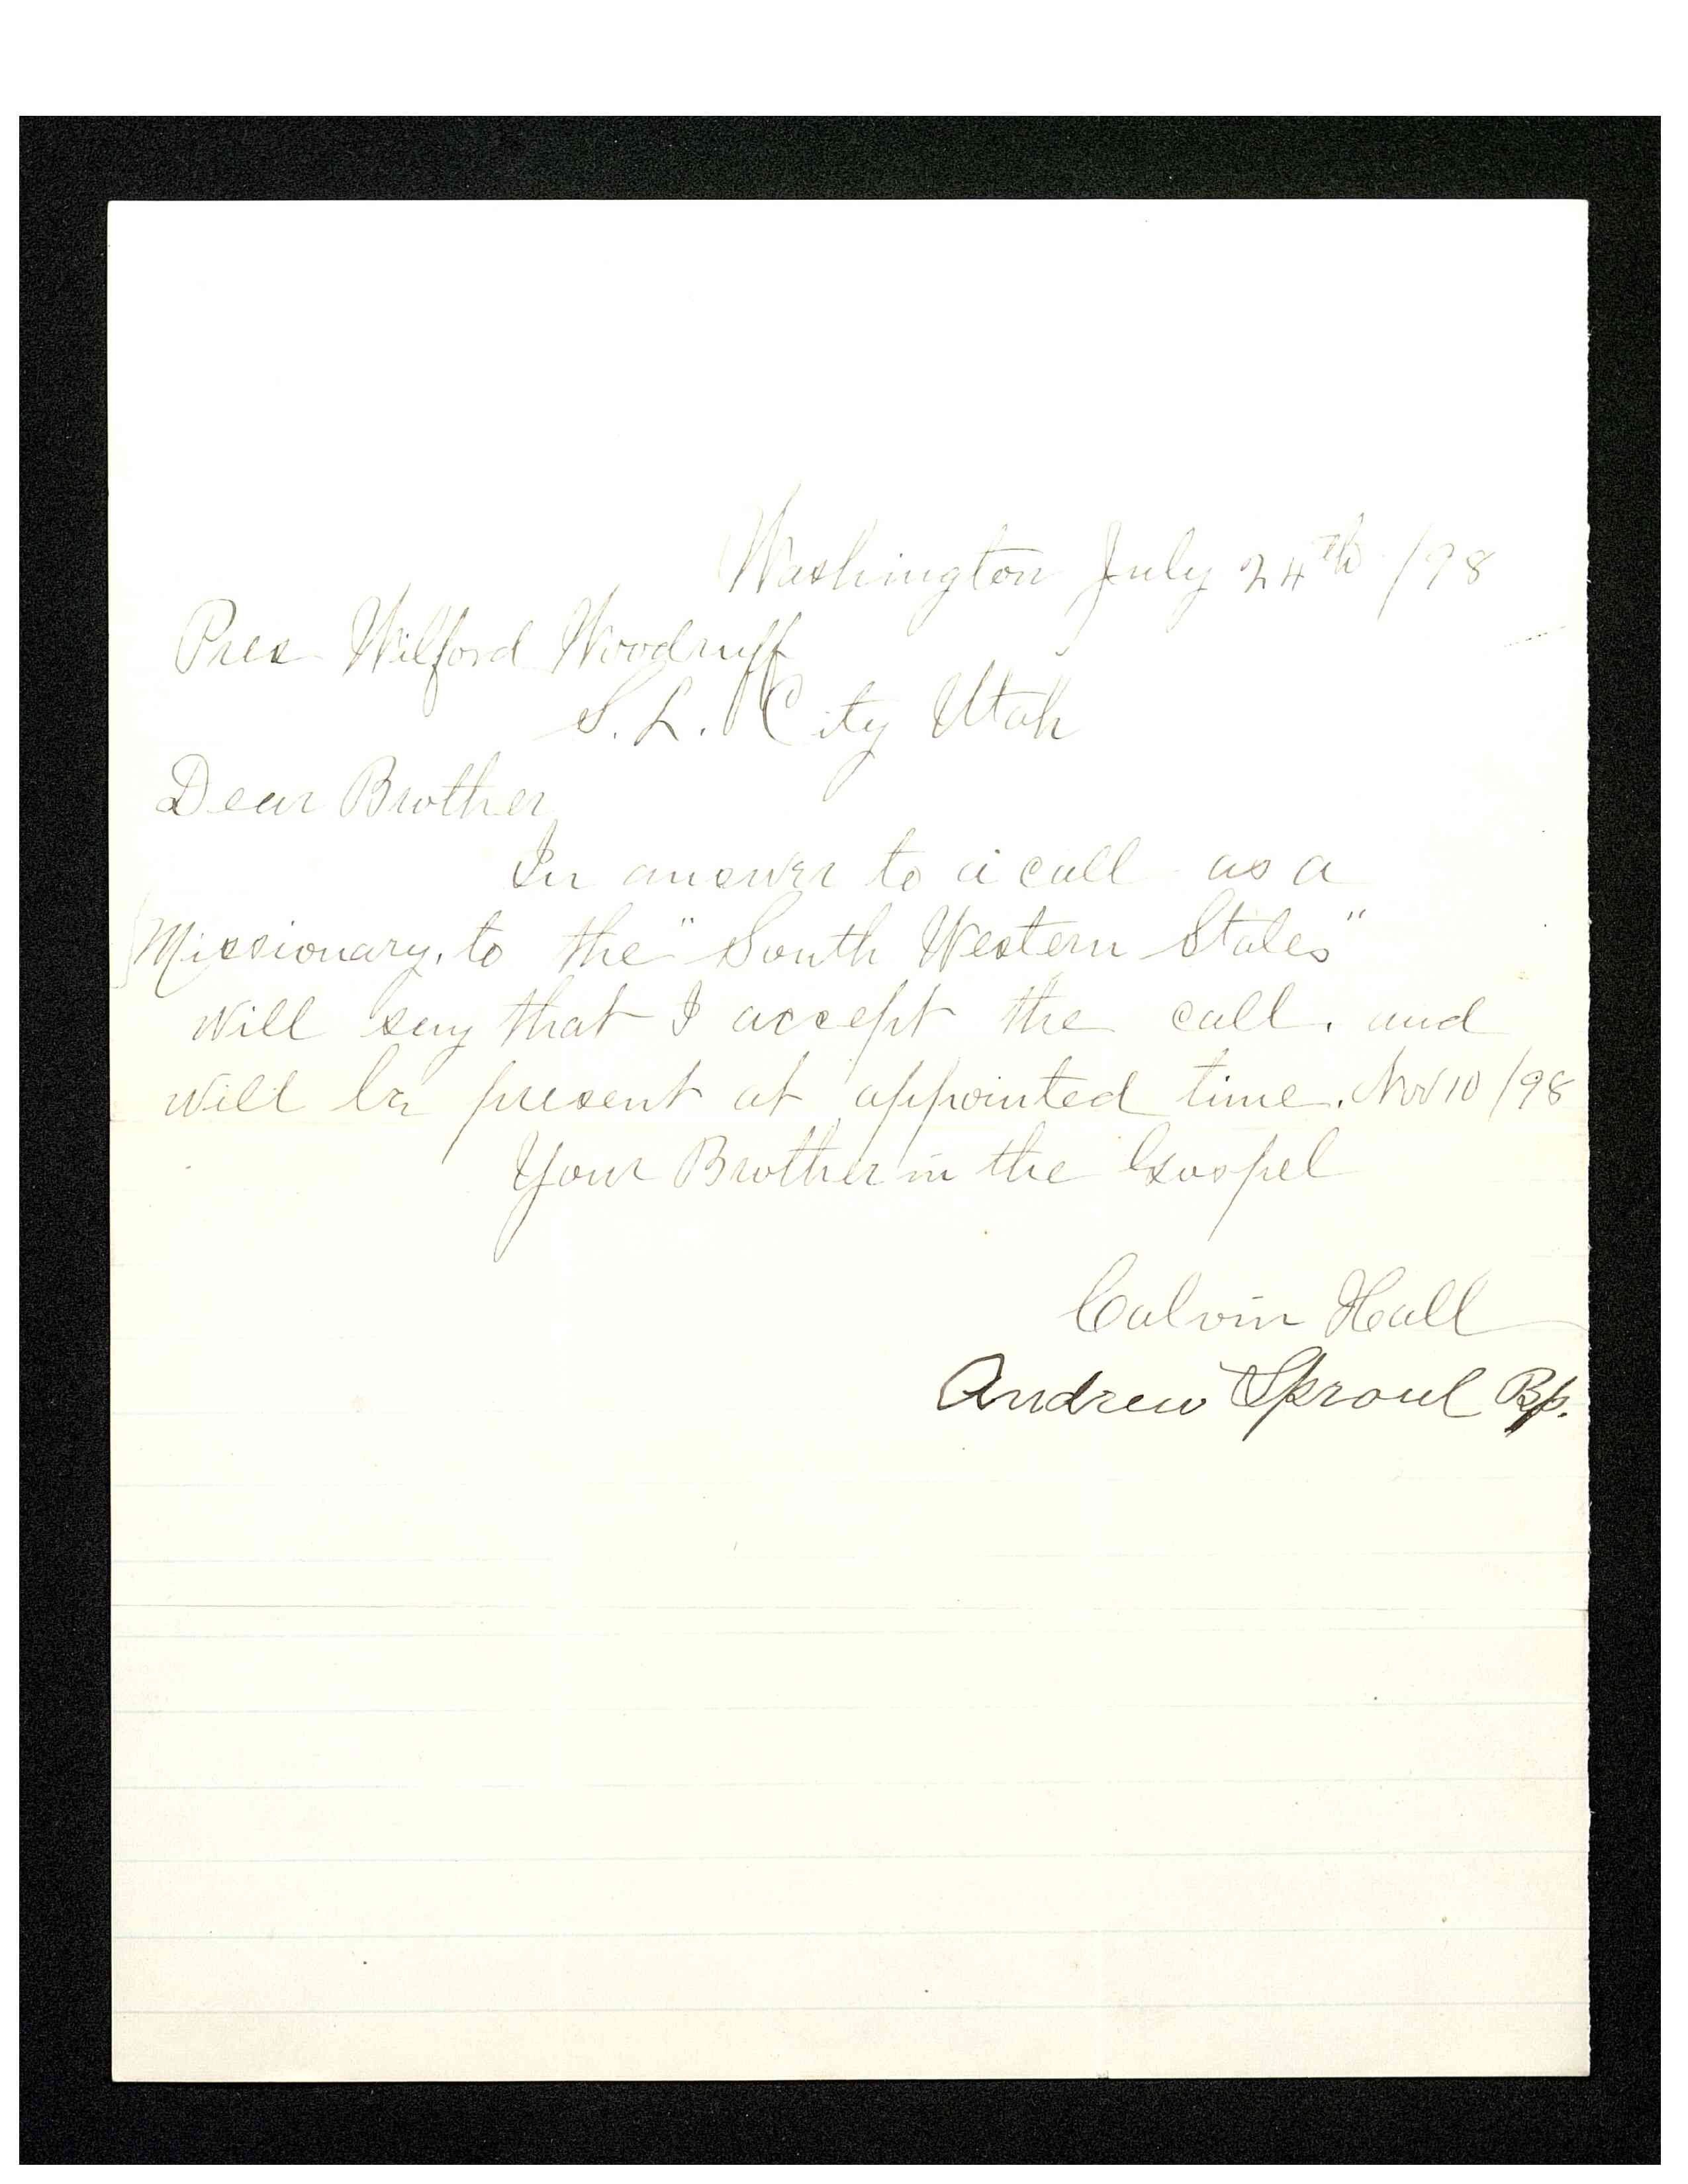 Washington July 24th /98
Pres Wilford Woodruff
S. L. City Utah
Dear Brother
In answer to a call as a
Missionary, to the "South Western States"
will say that I accept the call, and
will be present at appointed time. Nov 10 /98
Your Brother in the Gospel
Calvin Hall
Andrew Sproul Bp.